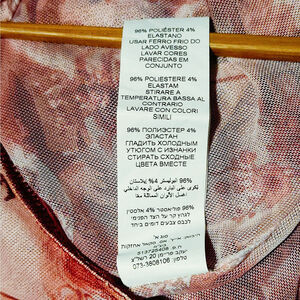 96% POLIÉSTER 4%
ELASTANO
USAR FERRO FRIO DO
LADO AVESSO
LAVAR CORES
PARECIDAS EM
CONJUNTO
96% POLIESTERE 4%
ELASTAM
STIRARE A
TEMPERATURA BASSA AL
CONTRARIO
LAVARE CON COLORI
SIMILI
96% ПОЛИЭСТЕР 4%
ЭЛАСТАН
ГЛАДИТЬ ХОЛОДНЫМ
УТЮГОМ С ИЗНАНКИ
СТИРАТЬ СХОДНЫЕ
ЦВЕТА ВМЕСТЕ
96% البوليستر 4% إيلاستان
تكوى على البارد على الوجه الداخلي
اغسل الألوان المماثلة معا
96% פוליאסטר 4% אלסטין
לגהץ קר על הצד הפנימי
לכבס צבעים דומים ביחד
סוג א'
יעקב פרימן 20 ראשל"צ
טלפון: 073-3808106